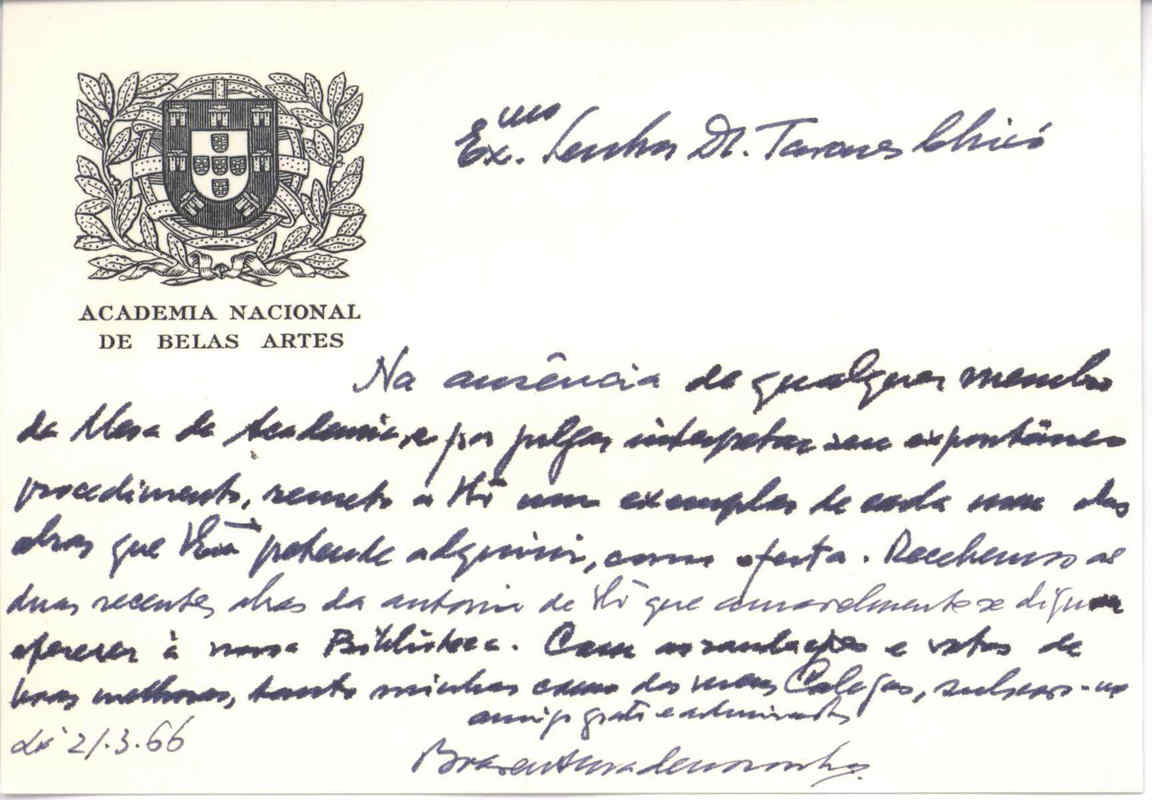 Ex.mo Senhor Dr. Tavares Chicó
ACADEMIA NACIONAL
DE BELAS ARTES
Na ausência de qualquer membro
da Mesa da Academia, e por julgar interpretar seu expontâneo
procedimento, remeto a um exemplar de cada uma das
obras que pretende adquirir, como oferta. Recebemos as
duas recentes obras da autoria de que amavelmente se dignou
oferecer à nossa Biblioteca. Com as saudações e votos de
boas melhoras, tanto minhas como dos meus Colegas, subscrevo-me
amigo grato e admirador
21.3.66